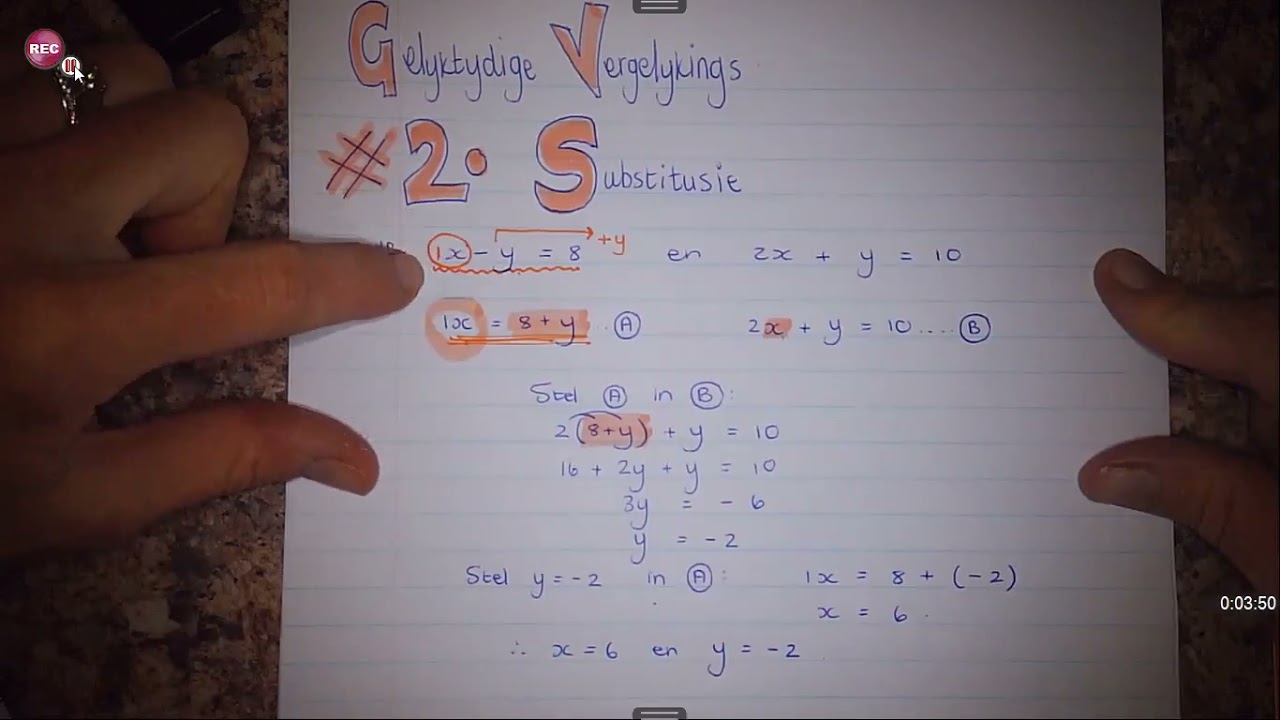 REC
Gelyktydige Vergelykings
#2. Substitusie
1x - y = 8 +y en 2x + y = 10
1x = 8 + y .. Ⓐ 2x + y = 10 .... Ⓑ
Stel Ⓐ in Ⓑ:
2(8+y) + y = 10
16 + 2y + y = 10
3y = - 6
y = - 2
Stel y = - 2 in Ⓐ: 1x = 8 + (- 2)
x = 6 .
0:03:50
∴ x = 6 en y = - 2